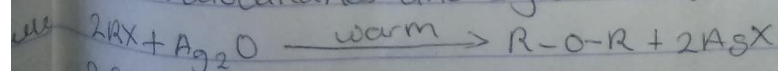 2RX + Ag2O warm → R-O-R + 2AgX